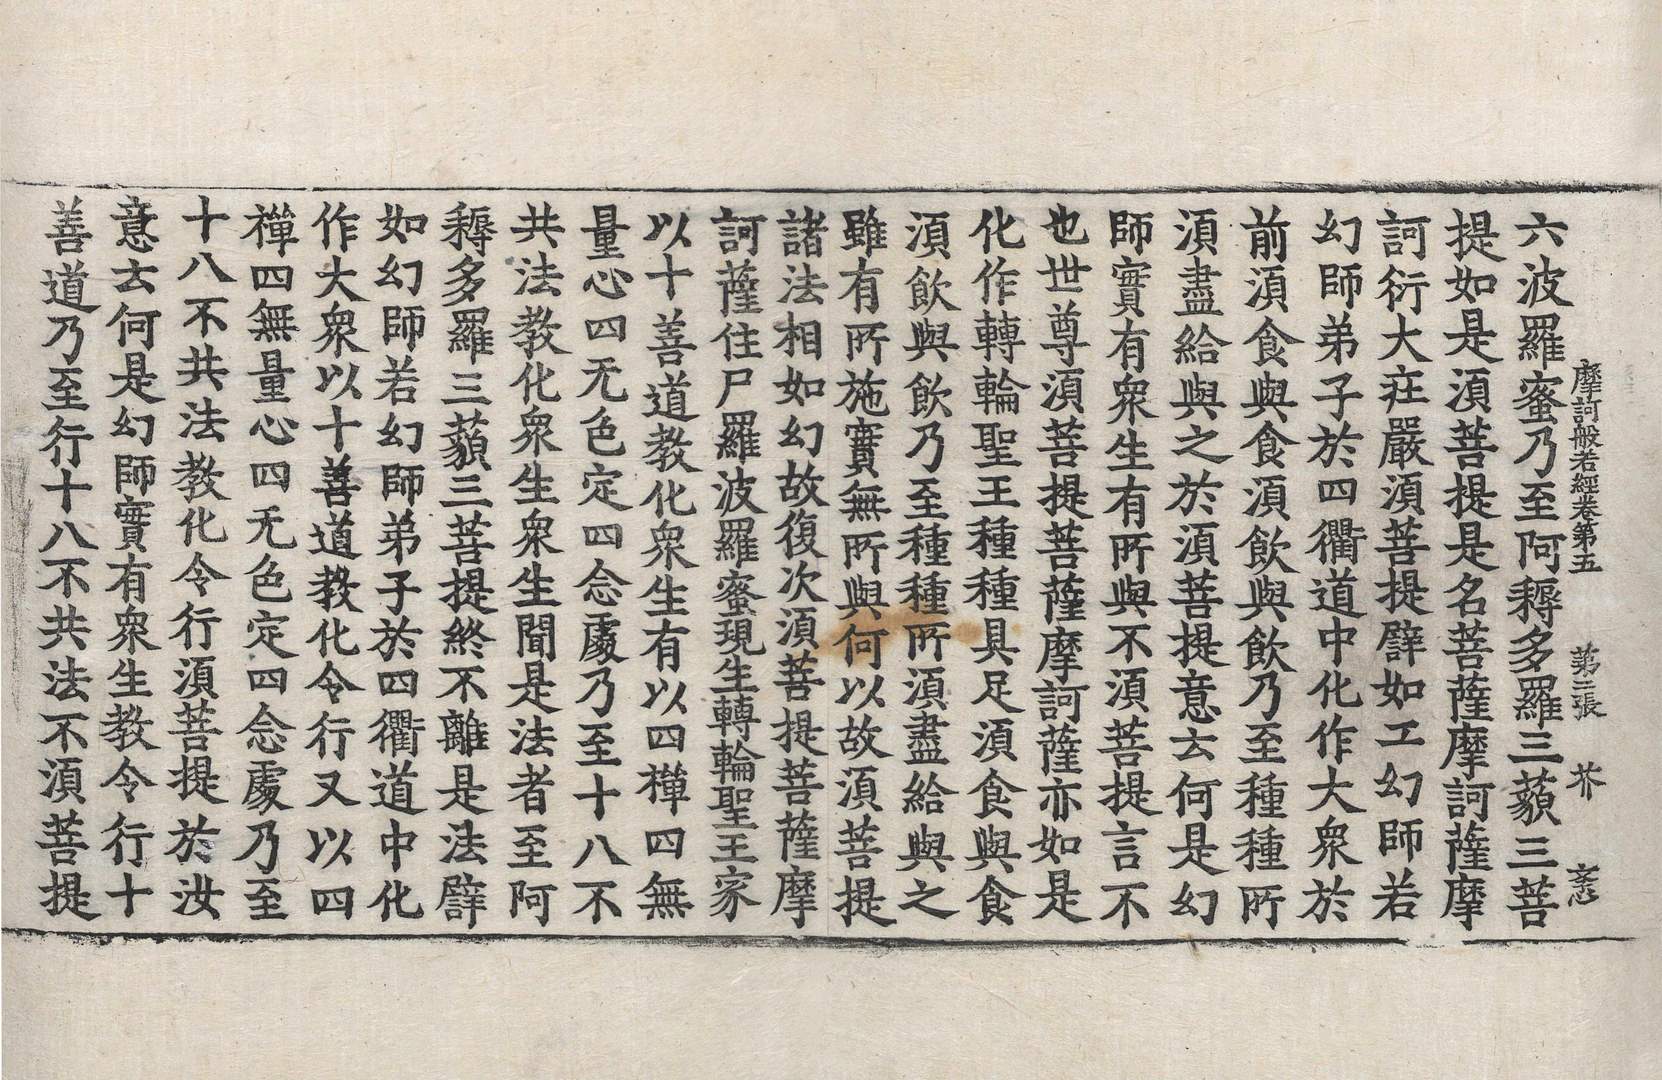 摩訶般若經卷第五 苐二張 芥 玄忿
六波羅蜜乃至阿耨多羅三藐三菩
提如是須菩提是名菩薩摩訶薩摩
訶衍大莊嚴須菩提譬如工幻師若
幻師弟子於四衢道中化作大衆於
前須食與食須飲與飲乃至種種所
須盡給與之於須菩提意云何是幻
師實有衆生有所與不須菩提言不
也世尊須菩提菩薩摩訶薩亦如是
化作轉輪聖王種種具足須食與食
須飲與飲乃至種種所須盡給與之
雖有所施實無所與何以故須菩提
諸法相如幻故復次須菩提菩薩摩
訶薩住尸羅波羅蜜現生轉輪聖王家
以十善道教化衆生有以四禪四無
量心四无色定四念處乃至十八不
共法教化衆生衆生聞是法者至阿
耨多羅三藐三菩提終不離是法譬
如幻師若幻師弟子於四衢道中化
作大衆以十善道教化令行又以四
禪四無量心四无色定四念處乃至
十八不共法教化令行須菩提於汝
意云何是幻師實有衆生教令行十
善道乃至行十八不共法不須菩提